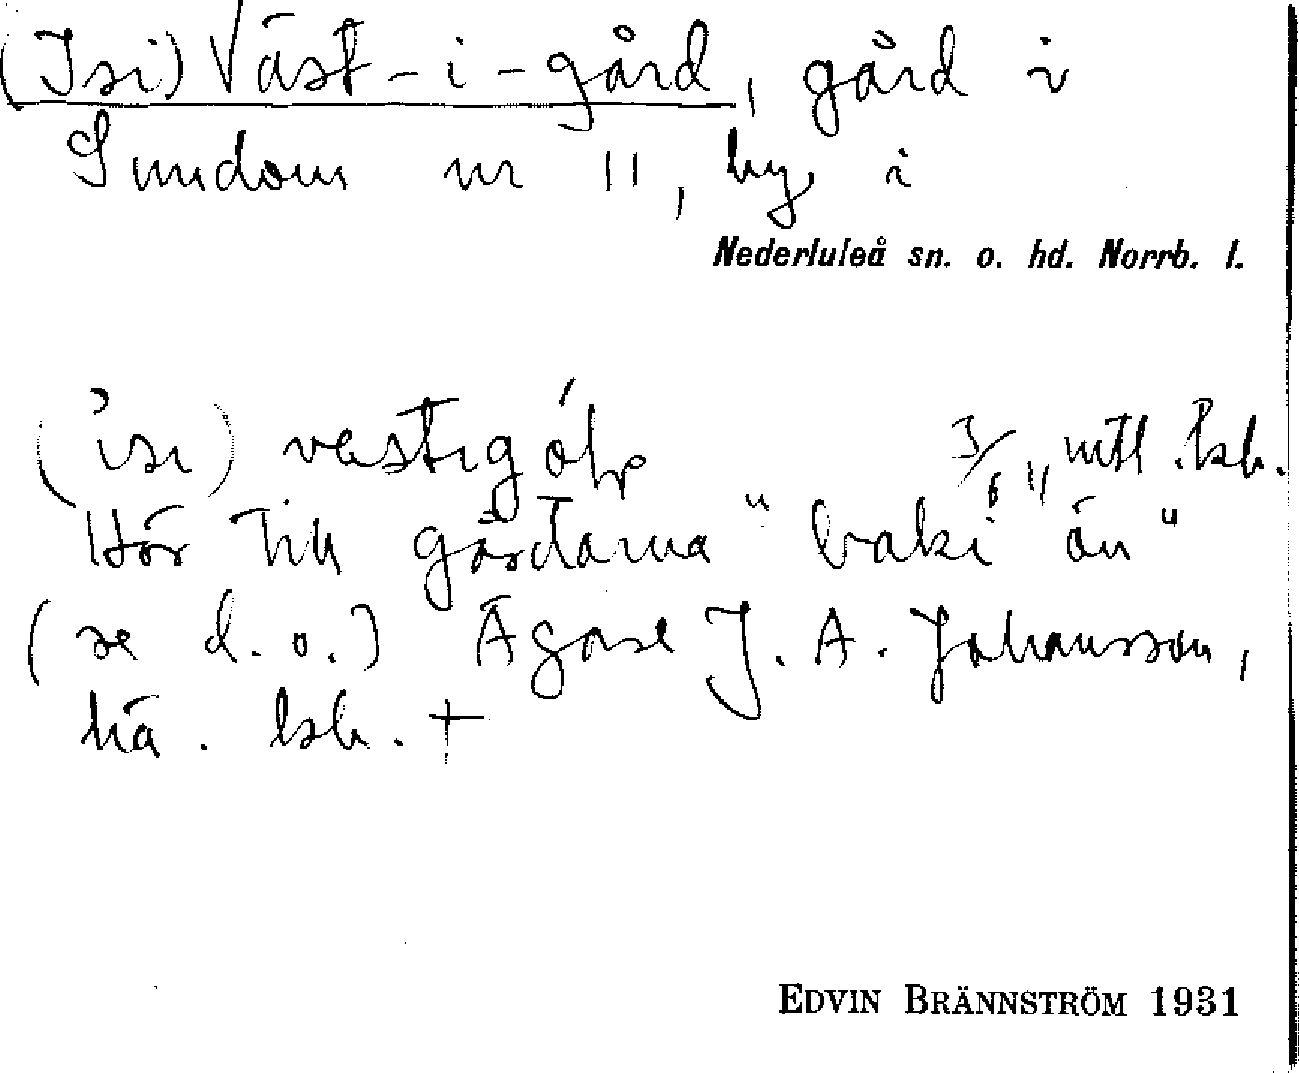 (Isi) Väst-i-gård, gård i
Sundom nr 11, by i
Nederluleå sn. o. hd. Norrb. l.
(isi) vestig 3/64 mtl. ksk.
Hör till gårdarna "baki ån"
(se d.o.) Ägare J. A. Johansson,
hä. ksk. +
EDVIN BRÄNNSTRÖM 1931